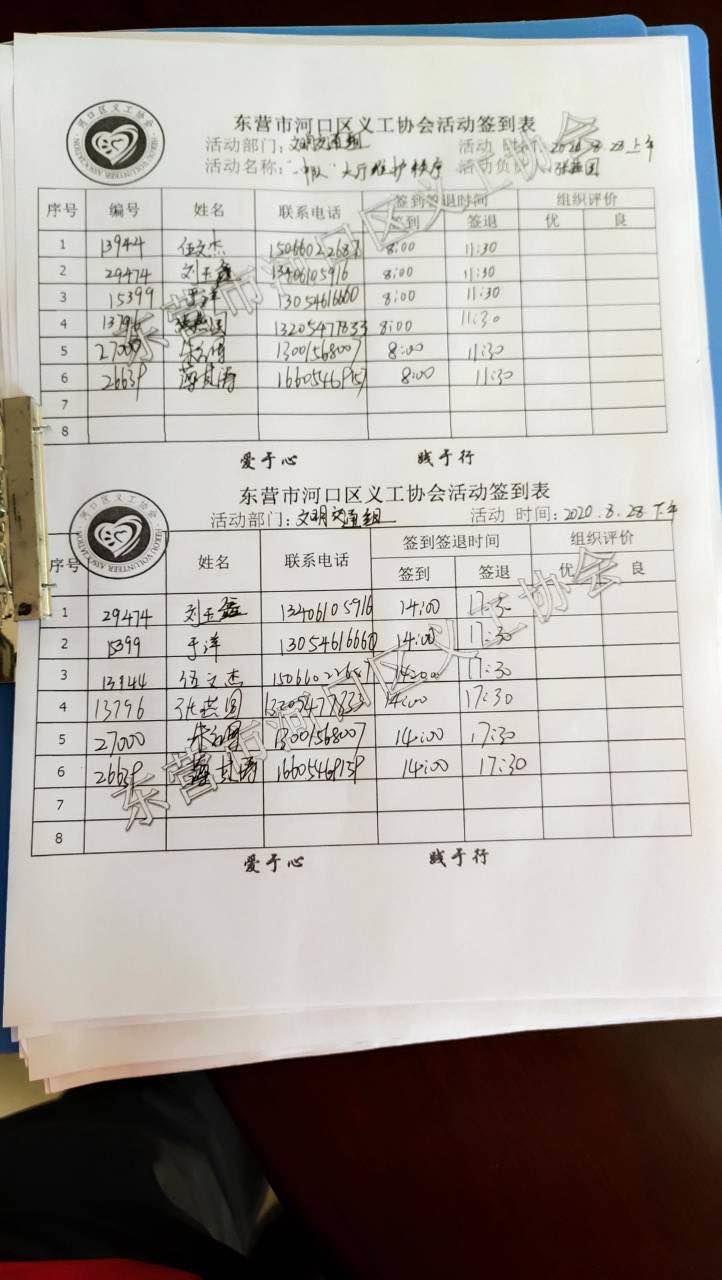 河口区义工协会
HEKOU VOLUNTEER ASSOCIATION
东营市河口区义工协会活动签到表
活动部门: 文明交通组 活动 时间: 2020.8.28上午
活动名称: 大厅维护秩序 活动负
序号 编号 姓名 联系电话 签到签退时间 组织评价
签到 签退 优 良
1 13944 伍文杰 8:00 11:30
2 29474 刘玉鑫 13406105916 8:00 11:30
3 15399 于洋 13054616660 8:00 11:30
4 13796 张燕园 13205477833 8:00 11:30
5 27000 13001568007 8:00 11:30
6 26639 8:00 11:30
7
8
爱于心 践于行
东营市河口区义工协会
河口区义工协会
HEKOU VOLUNTEER ASSOCIATION
东营市河口区义工协会活动签到表
活动部门: 文明交通组 活动 时间: 2020.8.28下午
序号 姓名 联系电话 签到签退时间 组织评价
签到 签退 优 良
1 29474 刘玉鑫 13406105916 14:00 17:30
2 15399 于洋 13054616660 14:00 17:30
3 13944 伍文杰 14:00 17:30
4 13796 张燕园 13205477833 14:00 17:30
5 27000 13001568007 14:00 17:30
6 26639 14:00 17:30
7
8
爱于心 践于行
东营市河口区义工协会